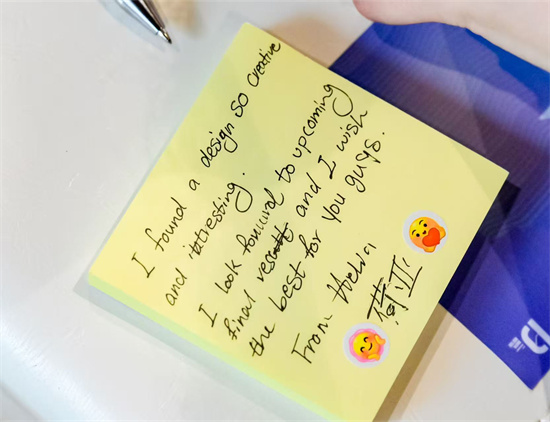 I found a design so creative
and intresting.
I look forward to upcoming
final result and I wish
the best for you guys.
From